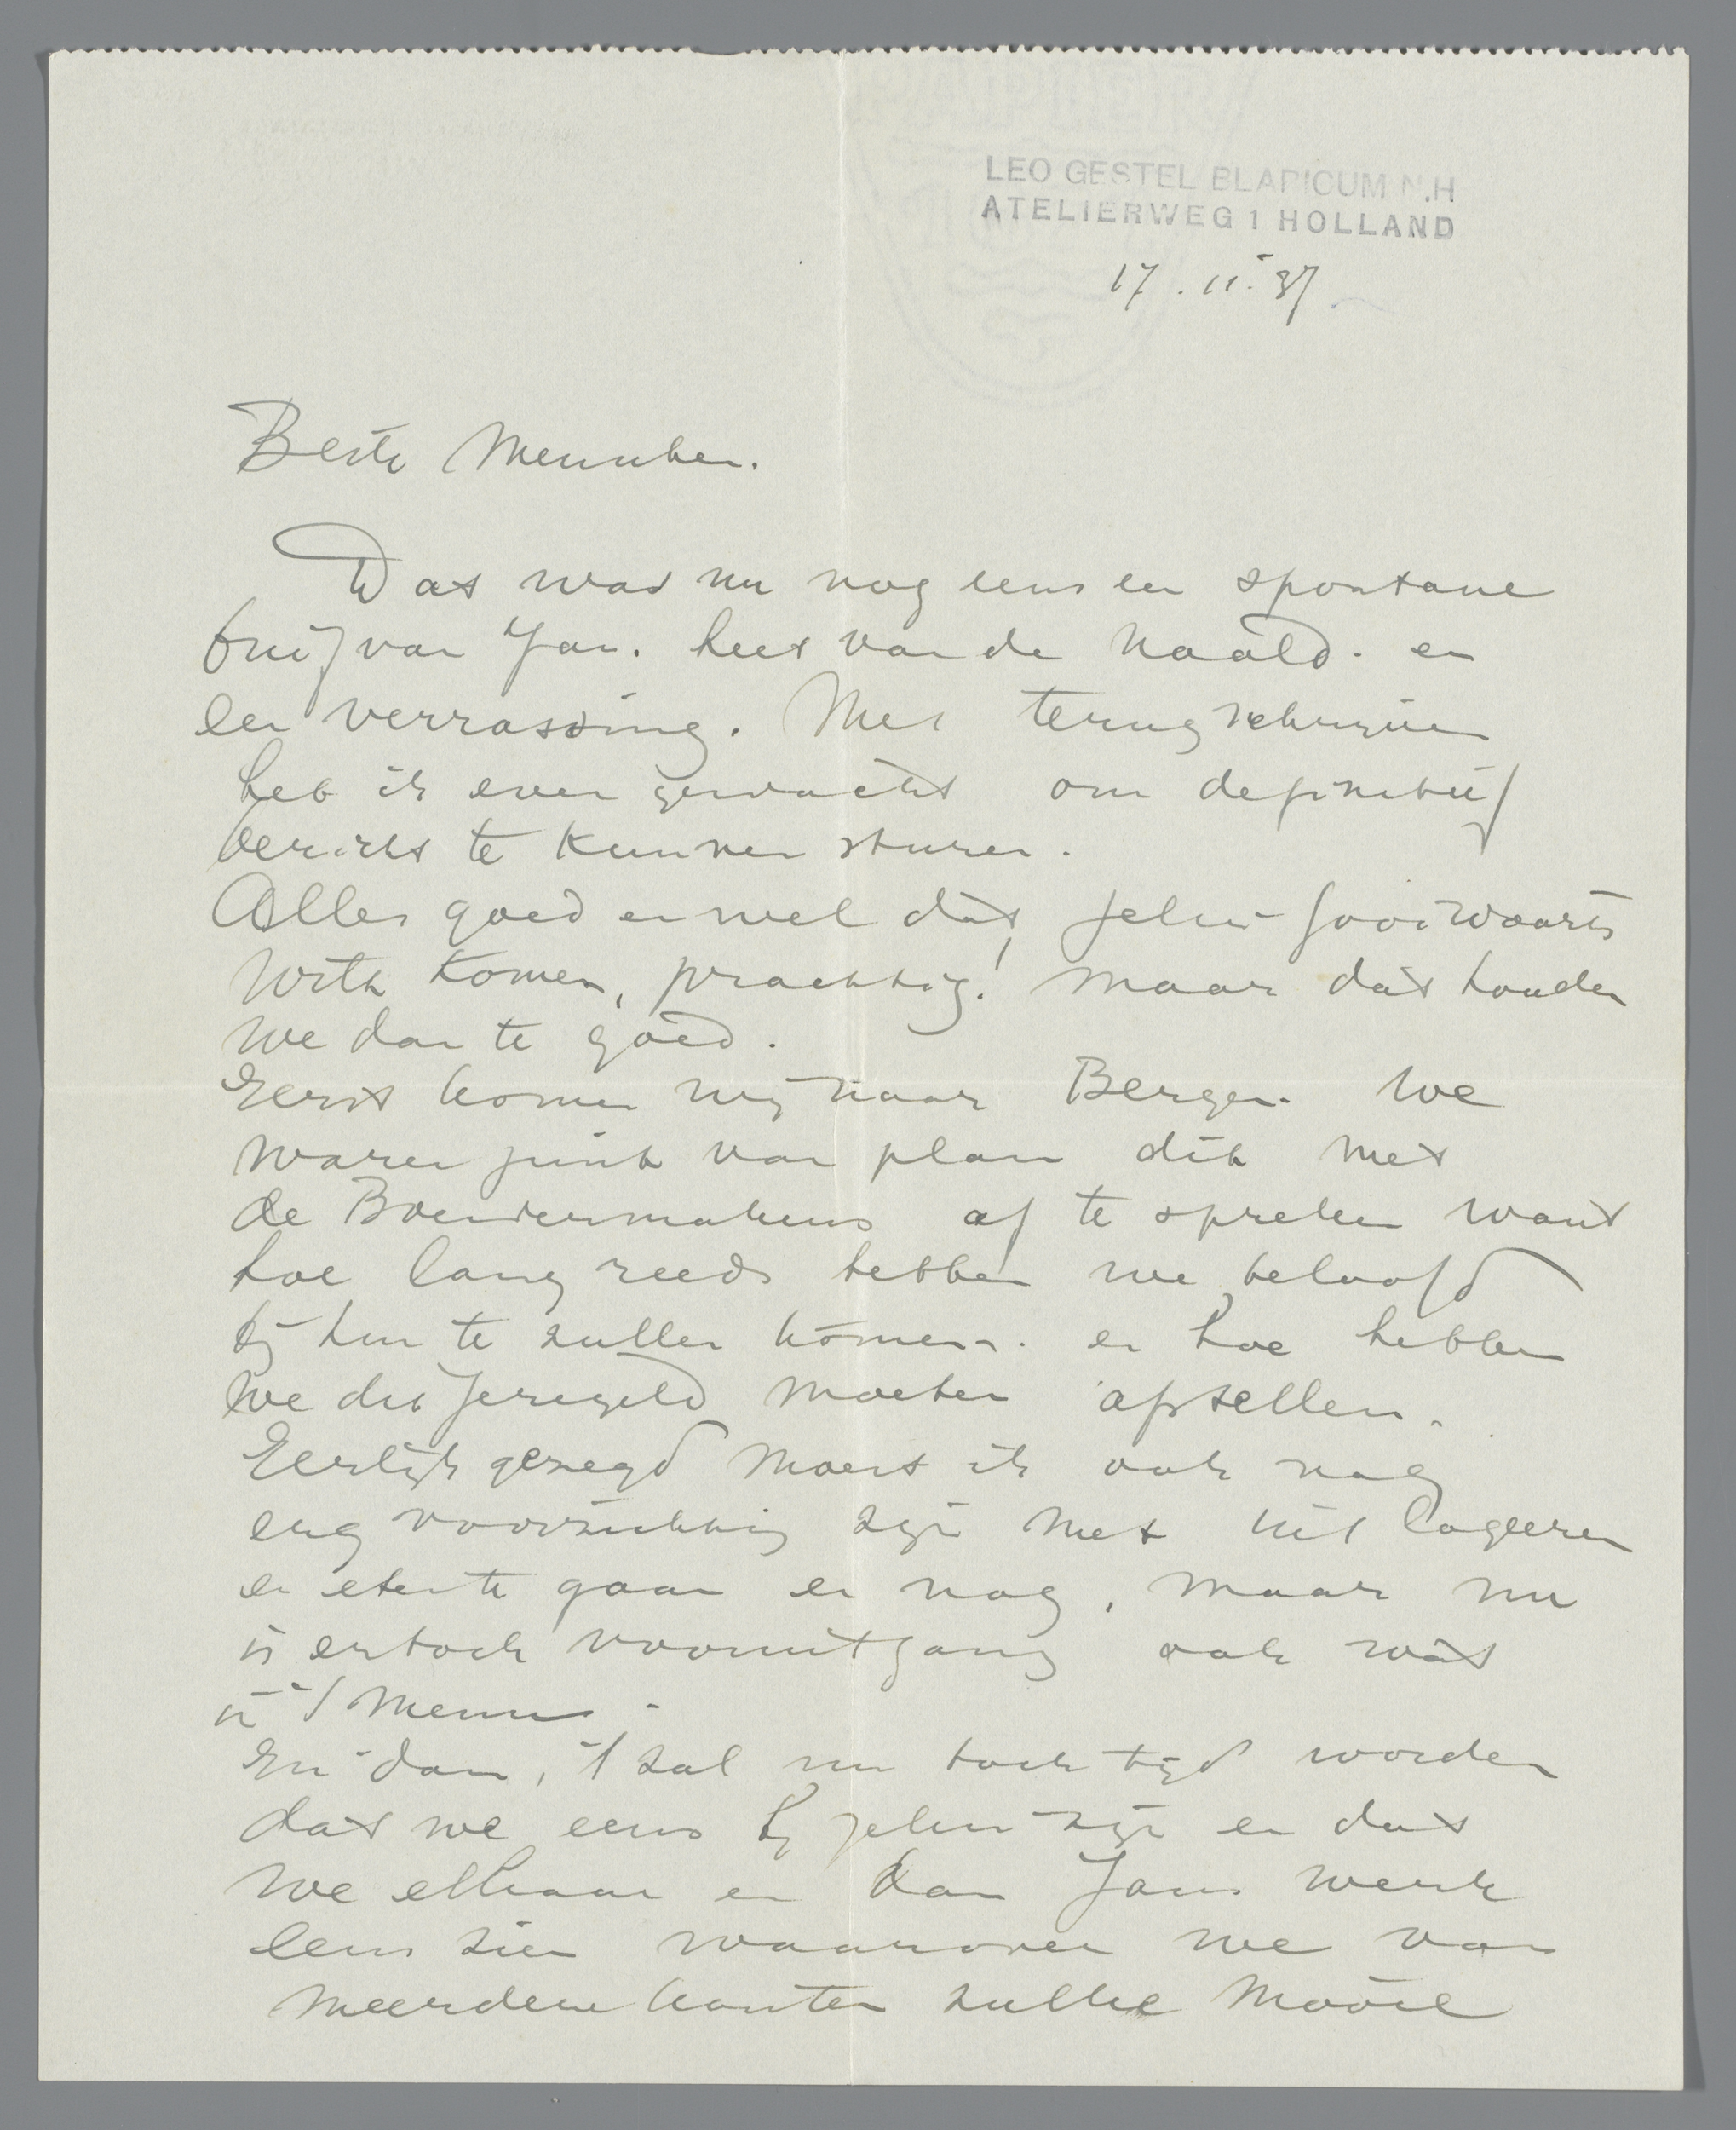 LEO GESTEL BLARICUM N.H
ATELIERWEG 1 HOLLAND
17.11.37.
Beste Menschen.
Dat was nu nog eens een spontane
brief van Jan. heet van de naald. en
een verrassing. Met terugschrijven
heb ik even gewacht om definitief
bericht te kunnen sturen.
Alles goed en wel dat jelui Gooiwaarts
wilt komen, prachtig! maar dat houden
we dan te goed.
Eerst komen wij naar Bergen. We
waren juist van plan dit met
de Boendermakers af te spreken want
hoe lang reeds hebben we beloofd
bij hun te zullen komen. en hoe hebben
we dit geregeld moeten afstellen.
Eerlijk gezegd moest ik ook nog
erg voorzichtig zijn met uit logeeren
en eten te gaan en nog, maar nu
is er toch vooruitgang ook wat
is 't menu.
En dan, 't zal nu toch tijd worden
dat we eens bij jelui zijn en dat
we elkaar en dan Jans werk
eens zien waarover we van
meerdere kanten zulke mooie